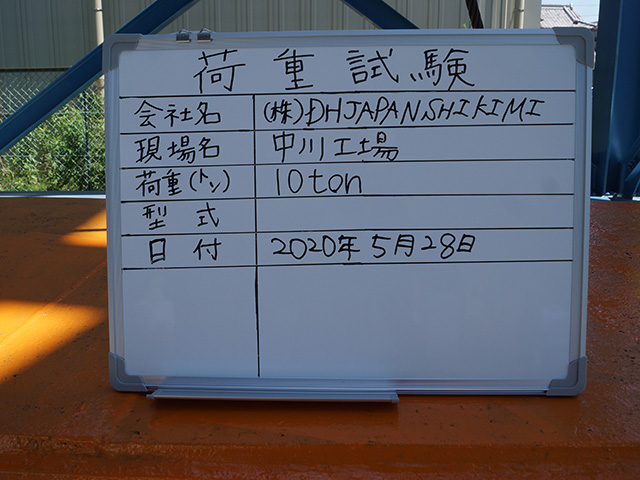 荷重試験
会社名 (株)DHJAPANSHIKIMI
現場名 中川工場
荷重(トン) 10ton
型式
日付 2020年5月28日